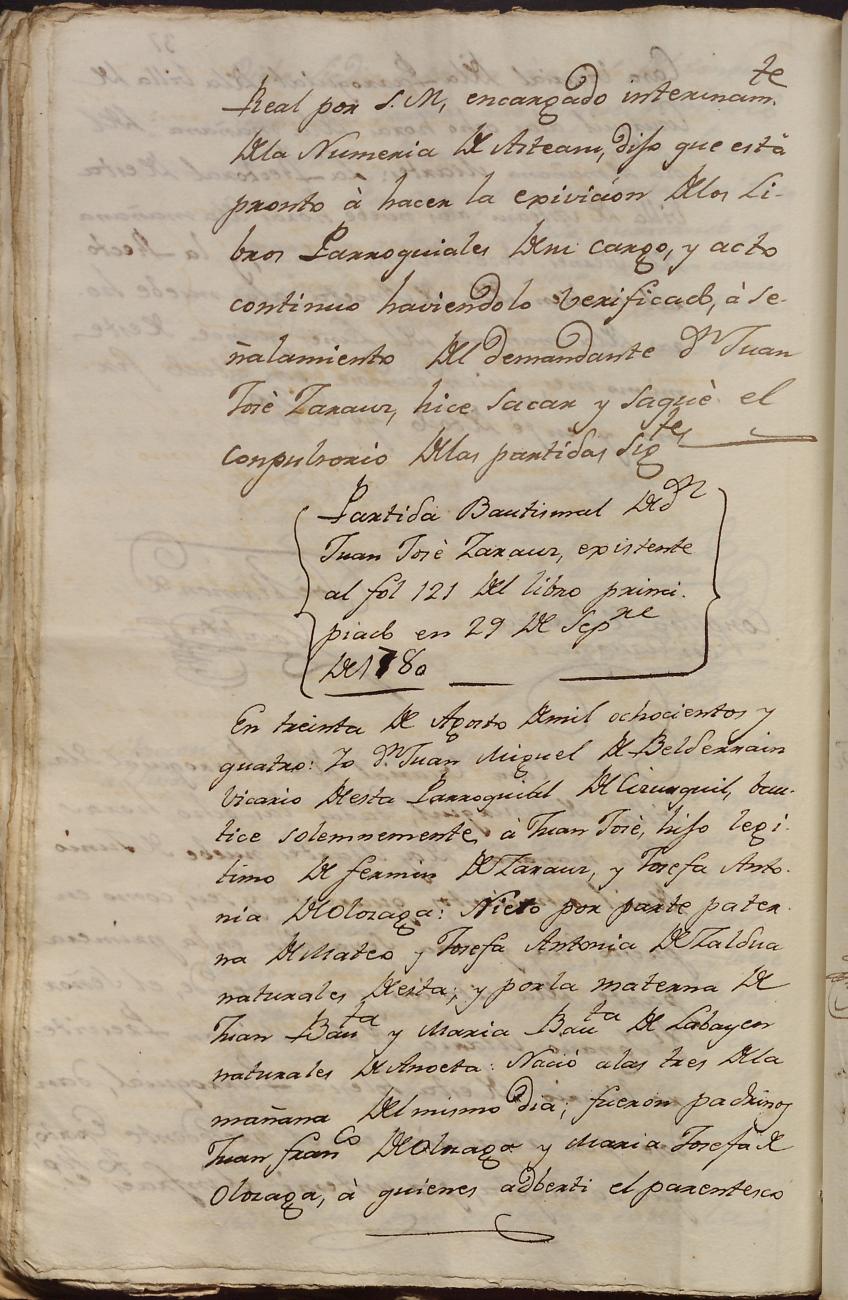 Real por S. M, encargado interinam.te
Dela Numeria De Asteasu, dijo que està
pronto à hacer la exivición Delos Li-
bros Parroquiales Desu cargo, y acto
continuo haviendolo verificado, à se-
ñalamiento Del demandante Dn Juan
Josè Zarauz, hice sacar y saquè el
conpulsorio Delas partidas sigtes
Partida Bautismal De dn
Juan Josè Zarauz, existente
al fol 121 Del libro princi-
piado en 29 De Sepre
De 1780
En treinta De Agosto Demil ochocientos y
quatro: Yo Dn Juan Miguel De Belderrain
Vicario Desta Parroquial De Cizurquil, bau-
tice solemnemente à Juan Josè, hijo legi-
timo De fermin De Zarauz, y Josefa Anto-
nia De Olozaga: Nieto por parte pater-
na De Mateo y Josefa Antonia De Zaldua
naturales Desta; y por la materna De
Juan Bauta y Maria Bauta De Labayen
naturales De Anoeta: Naciò alas tres Dela
mañana Del mismo dia; fueron padrinos
Juan Franco De Olozaga y Maria Josefa De
Olozaga, à quienes adberti el parentesco